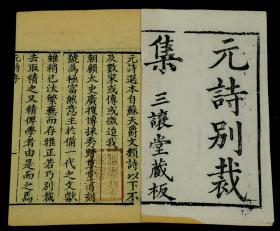 元詩別裁
集
三讓堂藏板
元詩選本自蘇天爵文類詩以下不
及數家或傳或微迨我
朝顧太史廣搜博採秀野草堂所刻
號為極富然意主於備一代之文獻
雖稍已汰繁蕪而存雅正若乃別裁
去取精之又精俾學者由是而之焉
元詩序